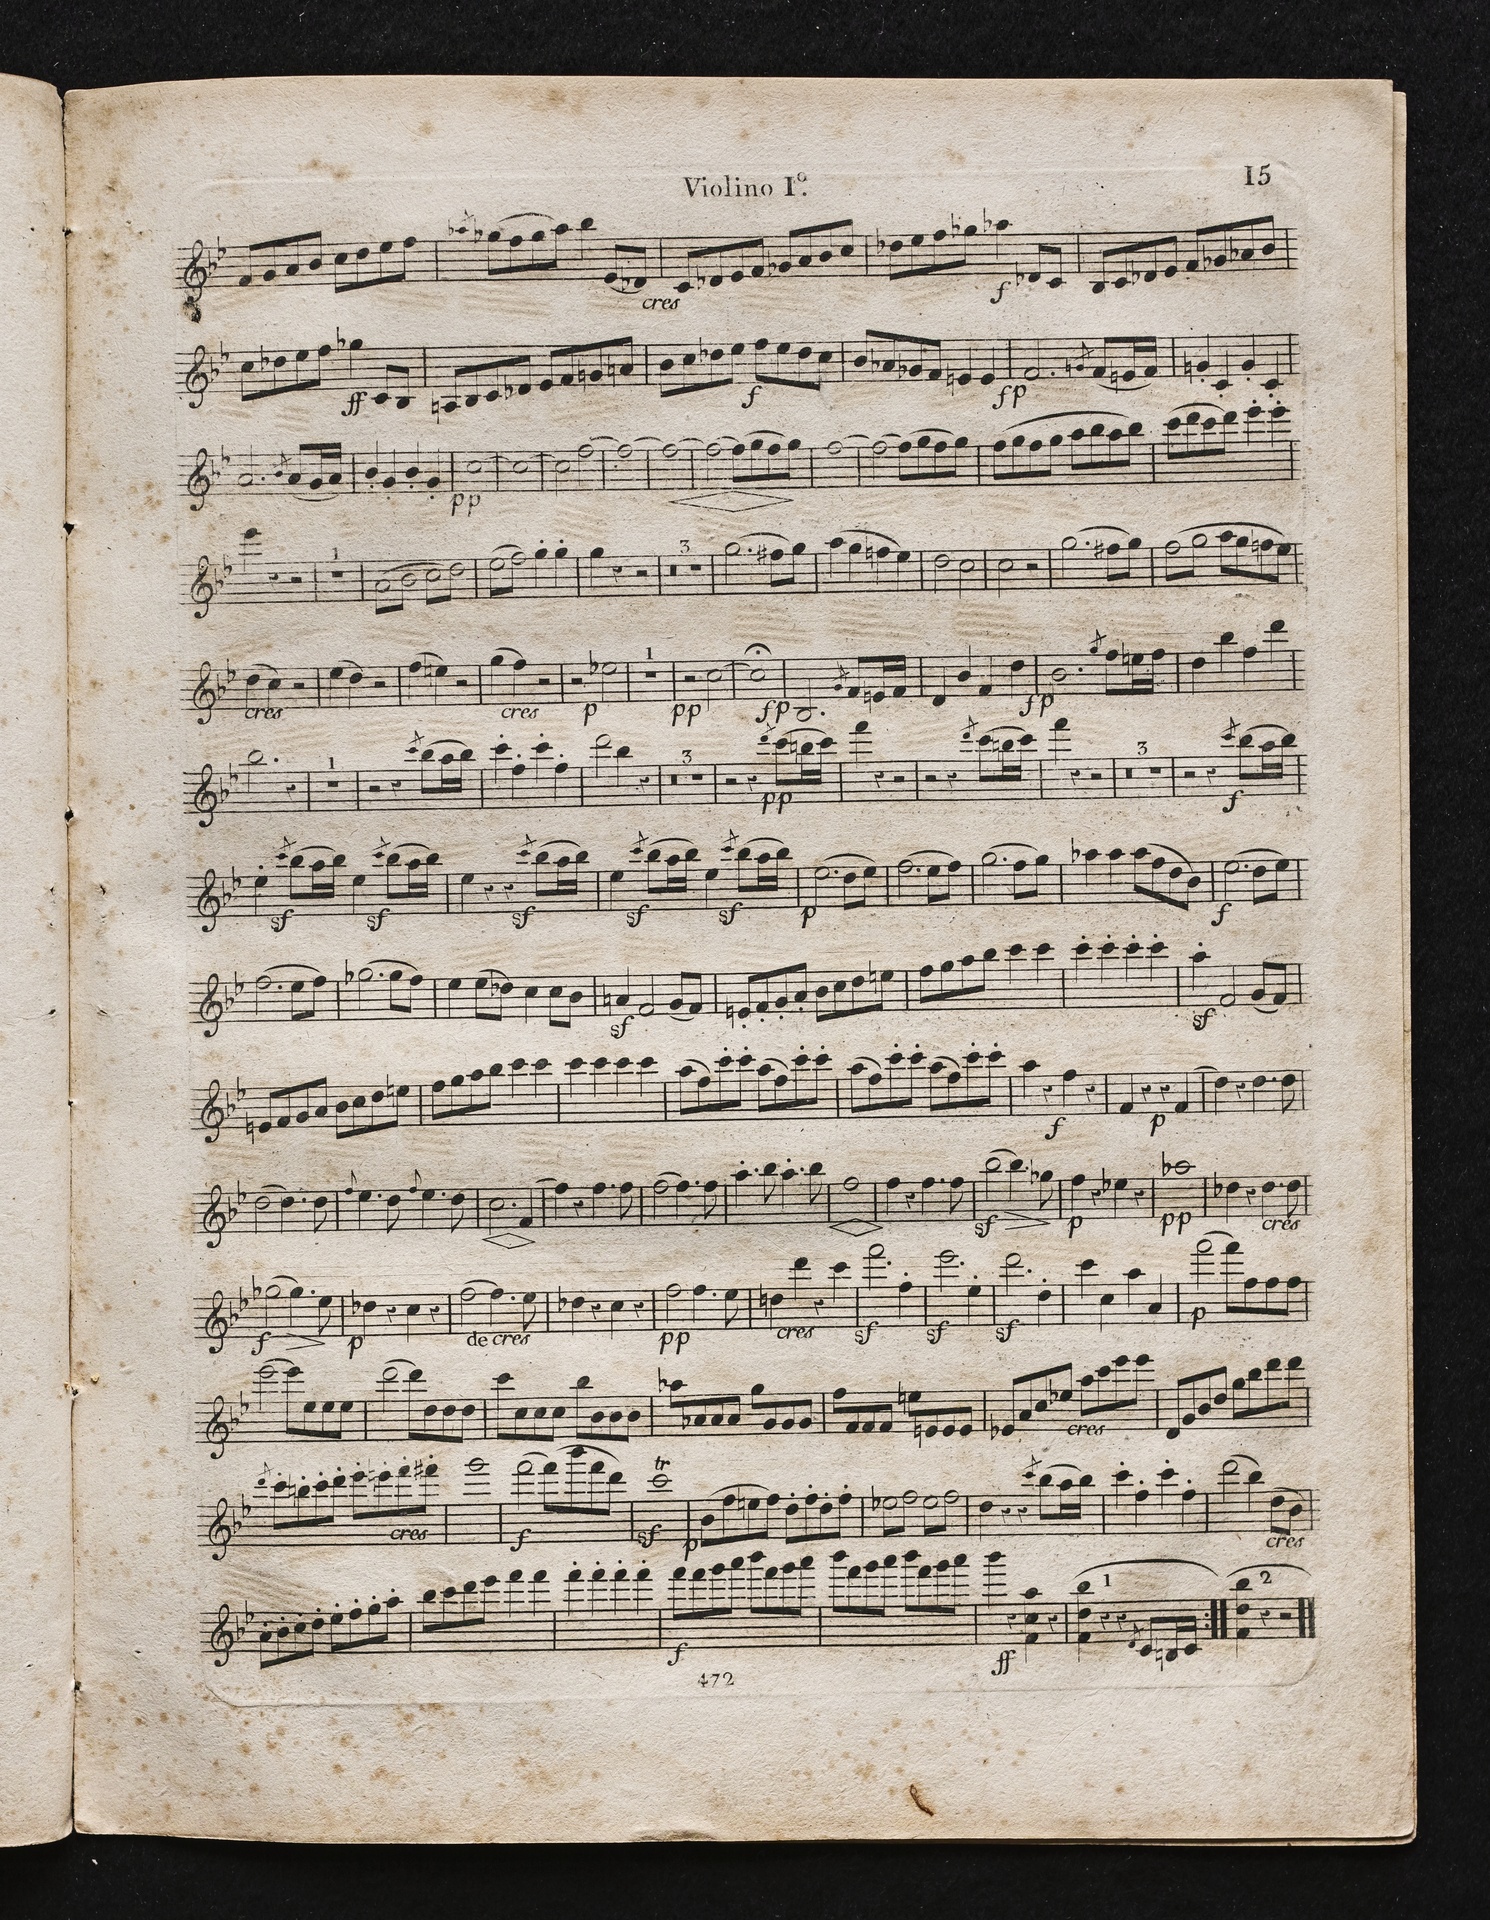 Violino I.º
15
cres f
ff f fp
pp
1 3
cres cres p 1 pp fp fp
1 3 pp 3 f
sf sf sf sf sf p f
sf sf
f p
sf p pp cres
f p de cres pp cres sf sf sf p
cres
cres f tr sf p cres
f ff 1 2
472